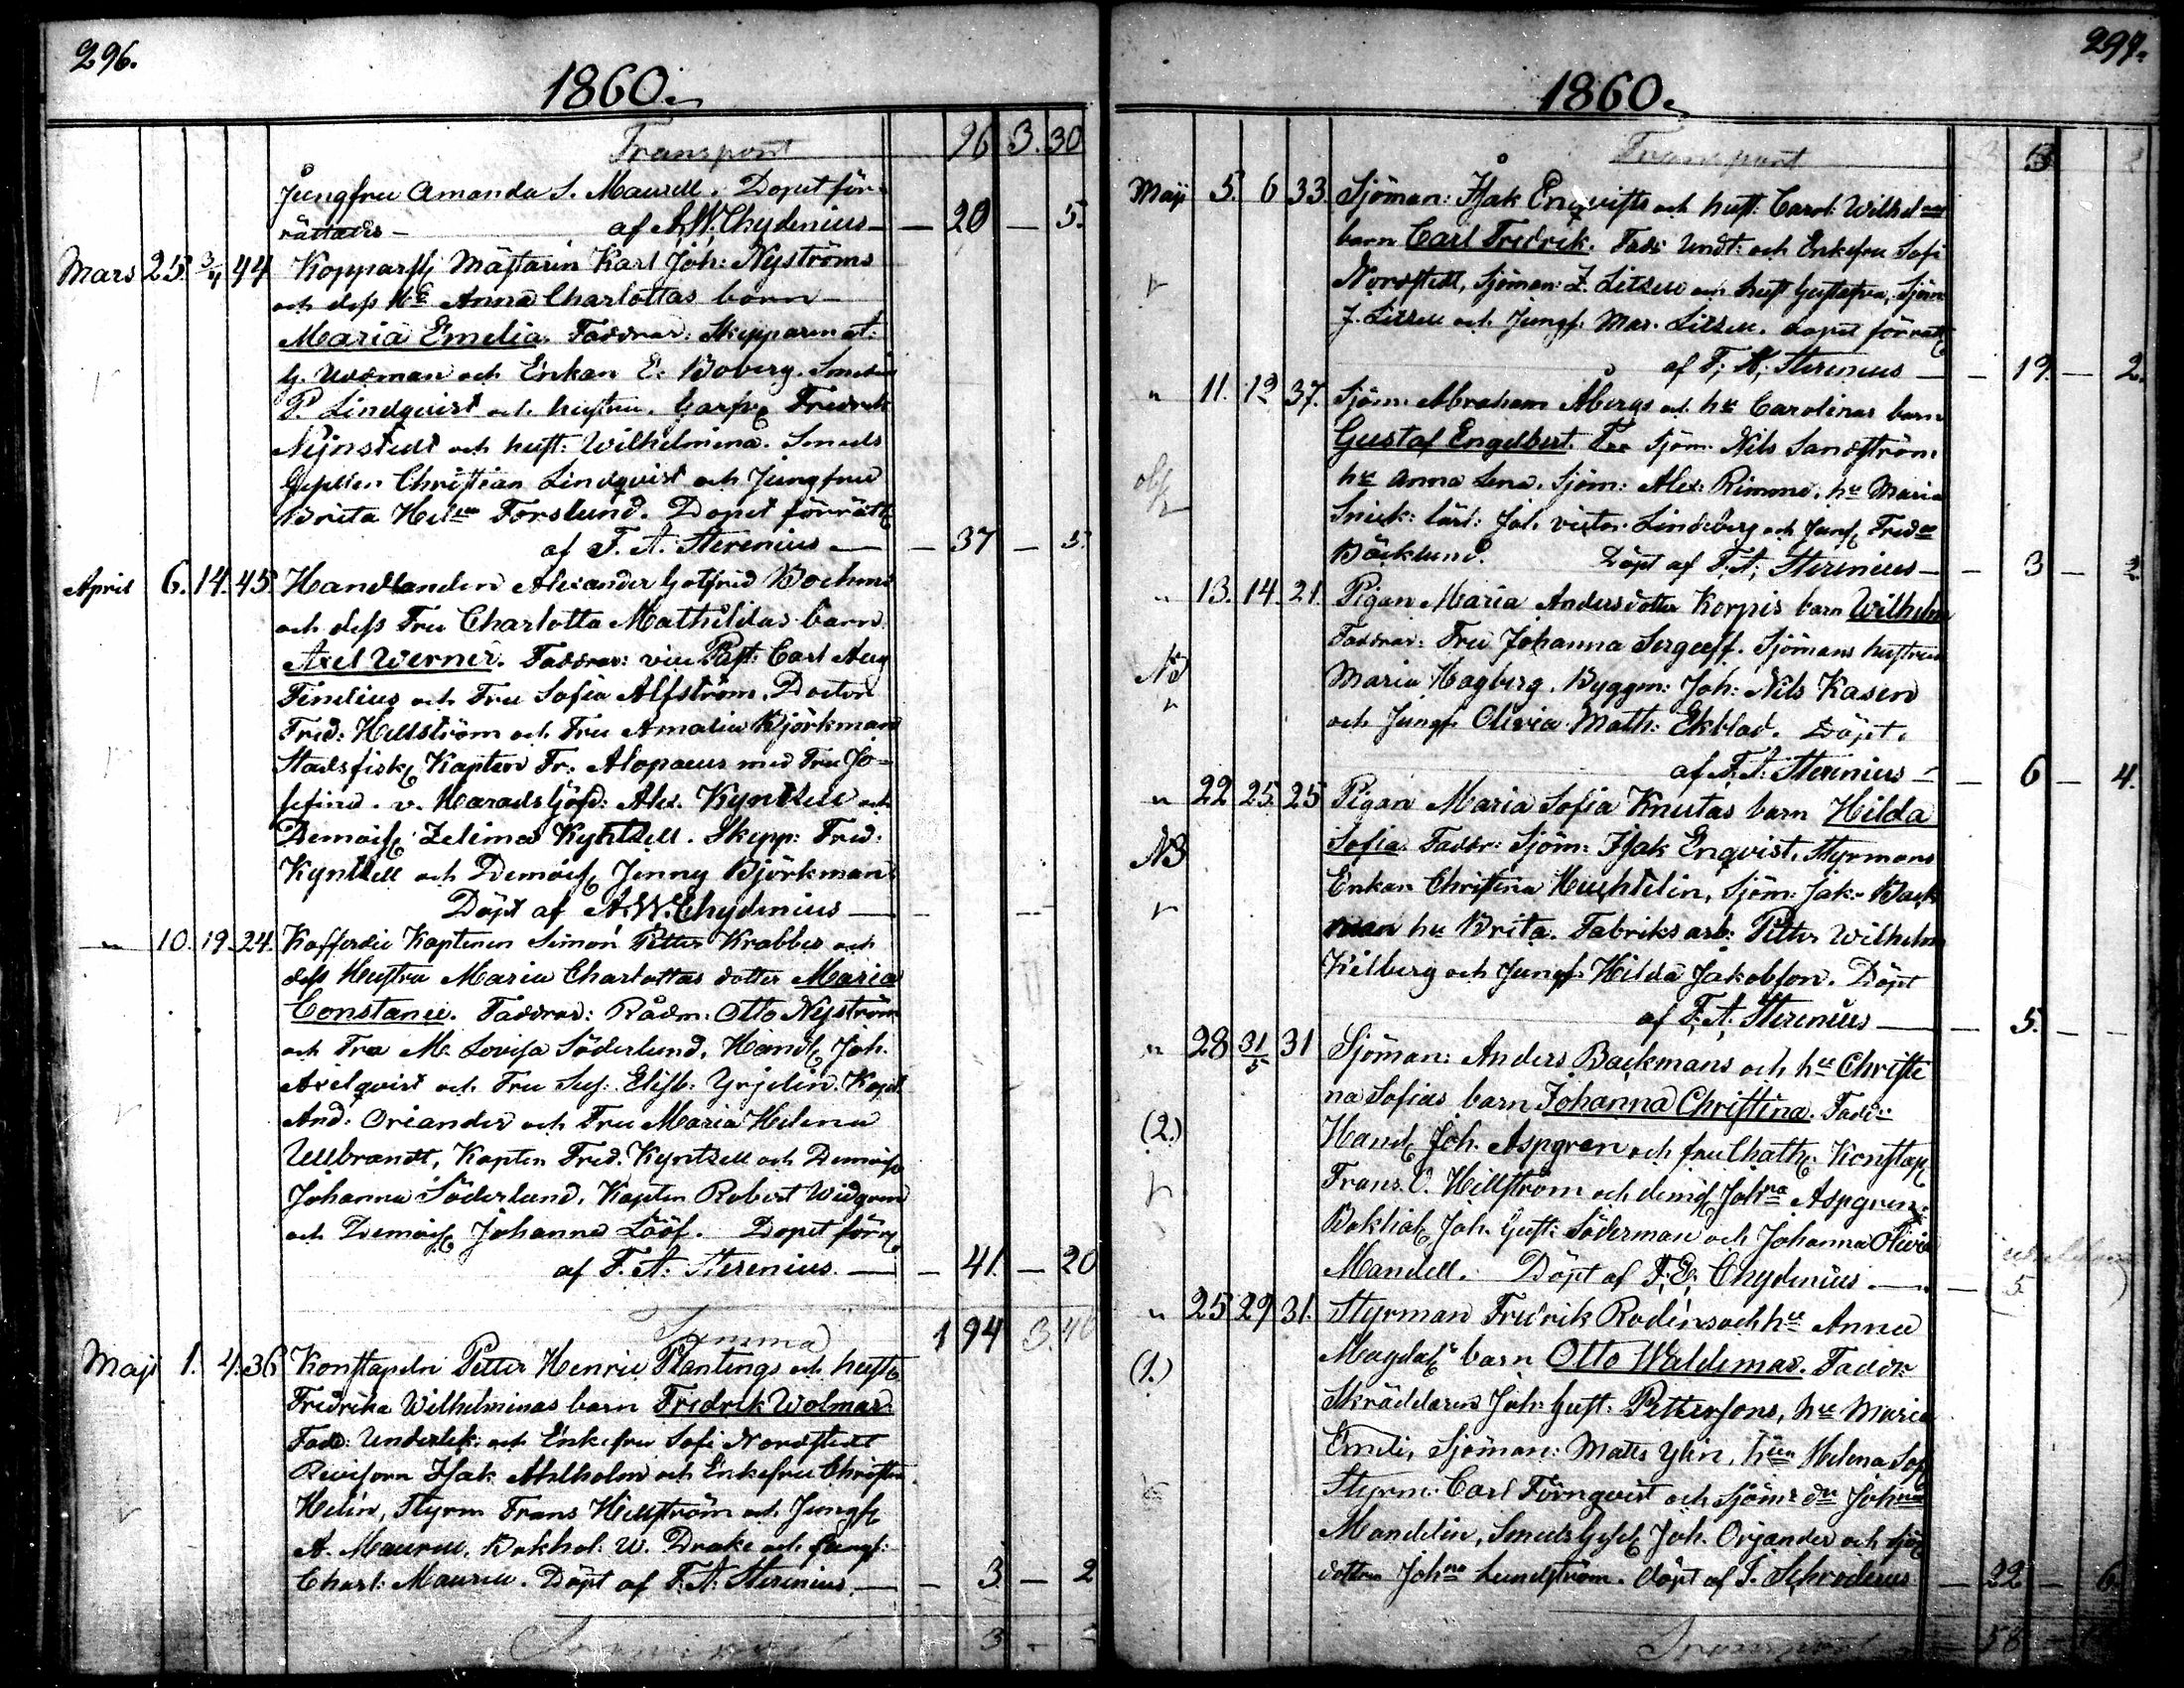 296.
1860.
Transport 96 3. 30
Jungfru Amanda S. Maurell. Dopet för-
rättades — af A.W. Chydenius — — 20 — 5.
Mars 25. 3/4 44 Kopparsl. Mästarin Karl Joh: Nyströms
och dess Hu Anna Charlottas barn
Maria Emelia. Faddrar: Skepparen A.
G. Uddman och Enkan E. Boberg. Smeden
P. Lindqvist och hustru. Garfv. Fredrik
Nynstedt och hust: Wilhelmina. Smeds
Gesällen Christian Lindqvist och Jungfru
Brita Helena Forslund. Dopet förrätt.
af F. A. Sterenius — — 37 — 5.
April 6. 14. 45. Handlanden Alexander Gotfrid Boehms
och dess Fru Charlotta Mathildas barn
Axel Werner. Faddrar: vice Past: Carl Aug
Finelius och Fru Sofia Alfström, Doctor
Fred: Hellström och Fru Amalia Björkman
Stadsfisk. Kapten Fr. Alopaeus med Fru Jo-
sefina. v. Häradshöfd: Alex. Kyntzell och
Demois. Zelima Kyntzell. Skepp: Fred:
Kyntzell och Demois. Jenny Björkman
Döpt af A.W. Chydenius —
" 10. 19. 24. Kofferdie Kaptenen Simon Petter Krabbes och
dess Hustru Maria Charlottas dotter Maria
Constance. Faddrar: Rådm: Otto Nyström
och Fru M. Lovisa Söderlund, Handl. Joh.
Axelqvist och Fru Sus: Elisb: Yrjelin. Kapt.
And: Oriander och Fru Maria Helena
Ullbrandt, Kapten Fred. Kyntzell och Demois.
Johanna Söderlund, Kapten Robert Widgren
och Demois. Johanna Lööf. Dopet förr.
af F. A. Sterenius. — — 41. — 20
Summa 1 94 3. 40
Maji 1. 4. 36 Konstapeln Petter Henric Plantings och hust.
Fredrika Wilhelminas barn Fredrik Wolmar.
Fadd: Underlök: och Enkefru Sofi Nordstedt
Revisorn Isak Ahlholm och Enkefru Christina
Helin, Styrm Frans Hellström och Jungf.
A. Maurell, Bokhol: W. Drake och Jungf:
Charl: Maurell. Döpt af F. A. Sterenius. — — 3 — 2
3 -
297.
1860.
Transport
Maji 5. 6 33 Sjöman: Isak Enqvists och hust: Carol: Wilhel
barn Carl Fredrik. Fadr Undt: och Enkefru Sofi
Nordstedt, Sjöman: Z. Litzell och hust Gustafva, Sjöm
J. Litzell och Jungf: Mar. Litzell. dopet förrätt
af F. A. Sterenius — — 19. — 2.
" 11. 12 37. Sjöm: Abraham Åbergs och hu Carolinas barn
Gustaf Engelbert. Sjöm: Nils Sandström
hu Anna Lena. Sjöm: Alex: Rimmo, hu Maria
Snick: lärl: Joh. Victor Lindeberg och Jungf.
Bäcklund. Döpt af F. A. Sterenius — — 3 — 2.
" 13. 14. 21. Pigan Maria Andersdotter Korpis barn Wilhelm
NB Faddrar: Fru Johanna Sergeeff. Sjömans hustrun
Maria Hagberg. Byggm: Joh: Nils Kasen
och Jungf Olivia Math: Ekblad. Döpt.
af F. A. Sterenius — — 6 — 4.
" 22 25. 25 Pigan Maria Sofia Knutas barn Hilda
NB Sofia. Faddr: Sjöm: Isak Enqvist, Styrmans
Enkan Christina Huchtelin, Sjöm: Jak: Back
man hu Brita. Fabriks arb: Petter Wilhelm
Kilberg och Jungf. Hilda Jakobson. Döpt
af F. A. Sterenius — — 5. — —
" 28 31/5 31 Sjöman: Anders Backmans och hu Christi
na Sofias barn Johanna Christina. Fadd:
(2.) Handl. Joh. Aspgren och fru Chath. Konstap.
Frans. O. Hellström och demois. Johna Aspgren.
Bokhål. Joh. Gust: Söderman och Johanna Olivia
Mandell. Döpt af F. E. Chydenius — — (5 )
" 25 29 31. Styrman Fredrik Rodéns och hu Anna
(1.) Magdal. barn Otto Waldemar. Faddr:
Skräddaren Joh: Gust: Pettersons, hu Maria
Emeli, Sjöman: Matts Ylin, hun Helena Sof.
Styrm: Carl Törnqvist och Sjöm: dr Johna
Mandelin, Smeds Gesäl. Joh. Orjander och
dottern Johna Lundström. döpt af J. Schroderus — 22 — 6.
Transport 58